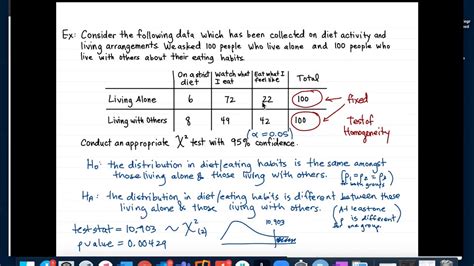 Ex: Consider the following data which has been collected on diet activity and
living arrangements. We asked 100 people who live alone and 100 people who
live with others about their eating habits.
On a strict diet Watch what I eat Eat what I feel like Total
Living Alone 6 72 22 100 fixed
Living with Others 8 49 42 100 Test of Homogeneity
Conduct an appropriate χ² test with 95% confidence. (α=0.05)
H₀: the distribution in diet/eating habits is the same amongst
those living alone & those living with others. (p₁=p₂=p₃) in both groups
Hₐ: the distribution in diet/eating habits is different between those
living alone & those living with others. (At least one p is different in one group.)
test-stat = 10.903 ~ χ²(2) 10.903
p value = 0.00429